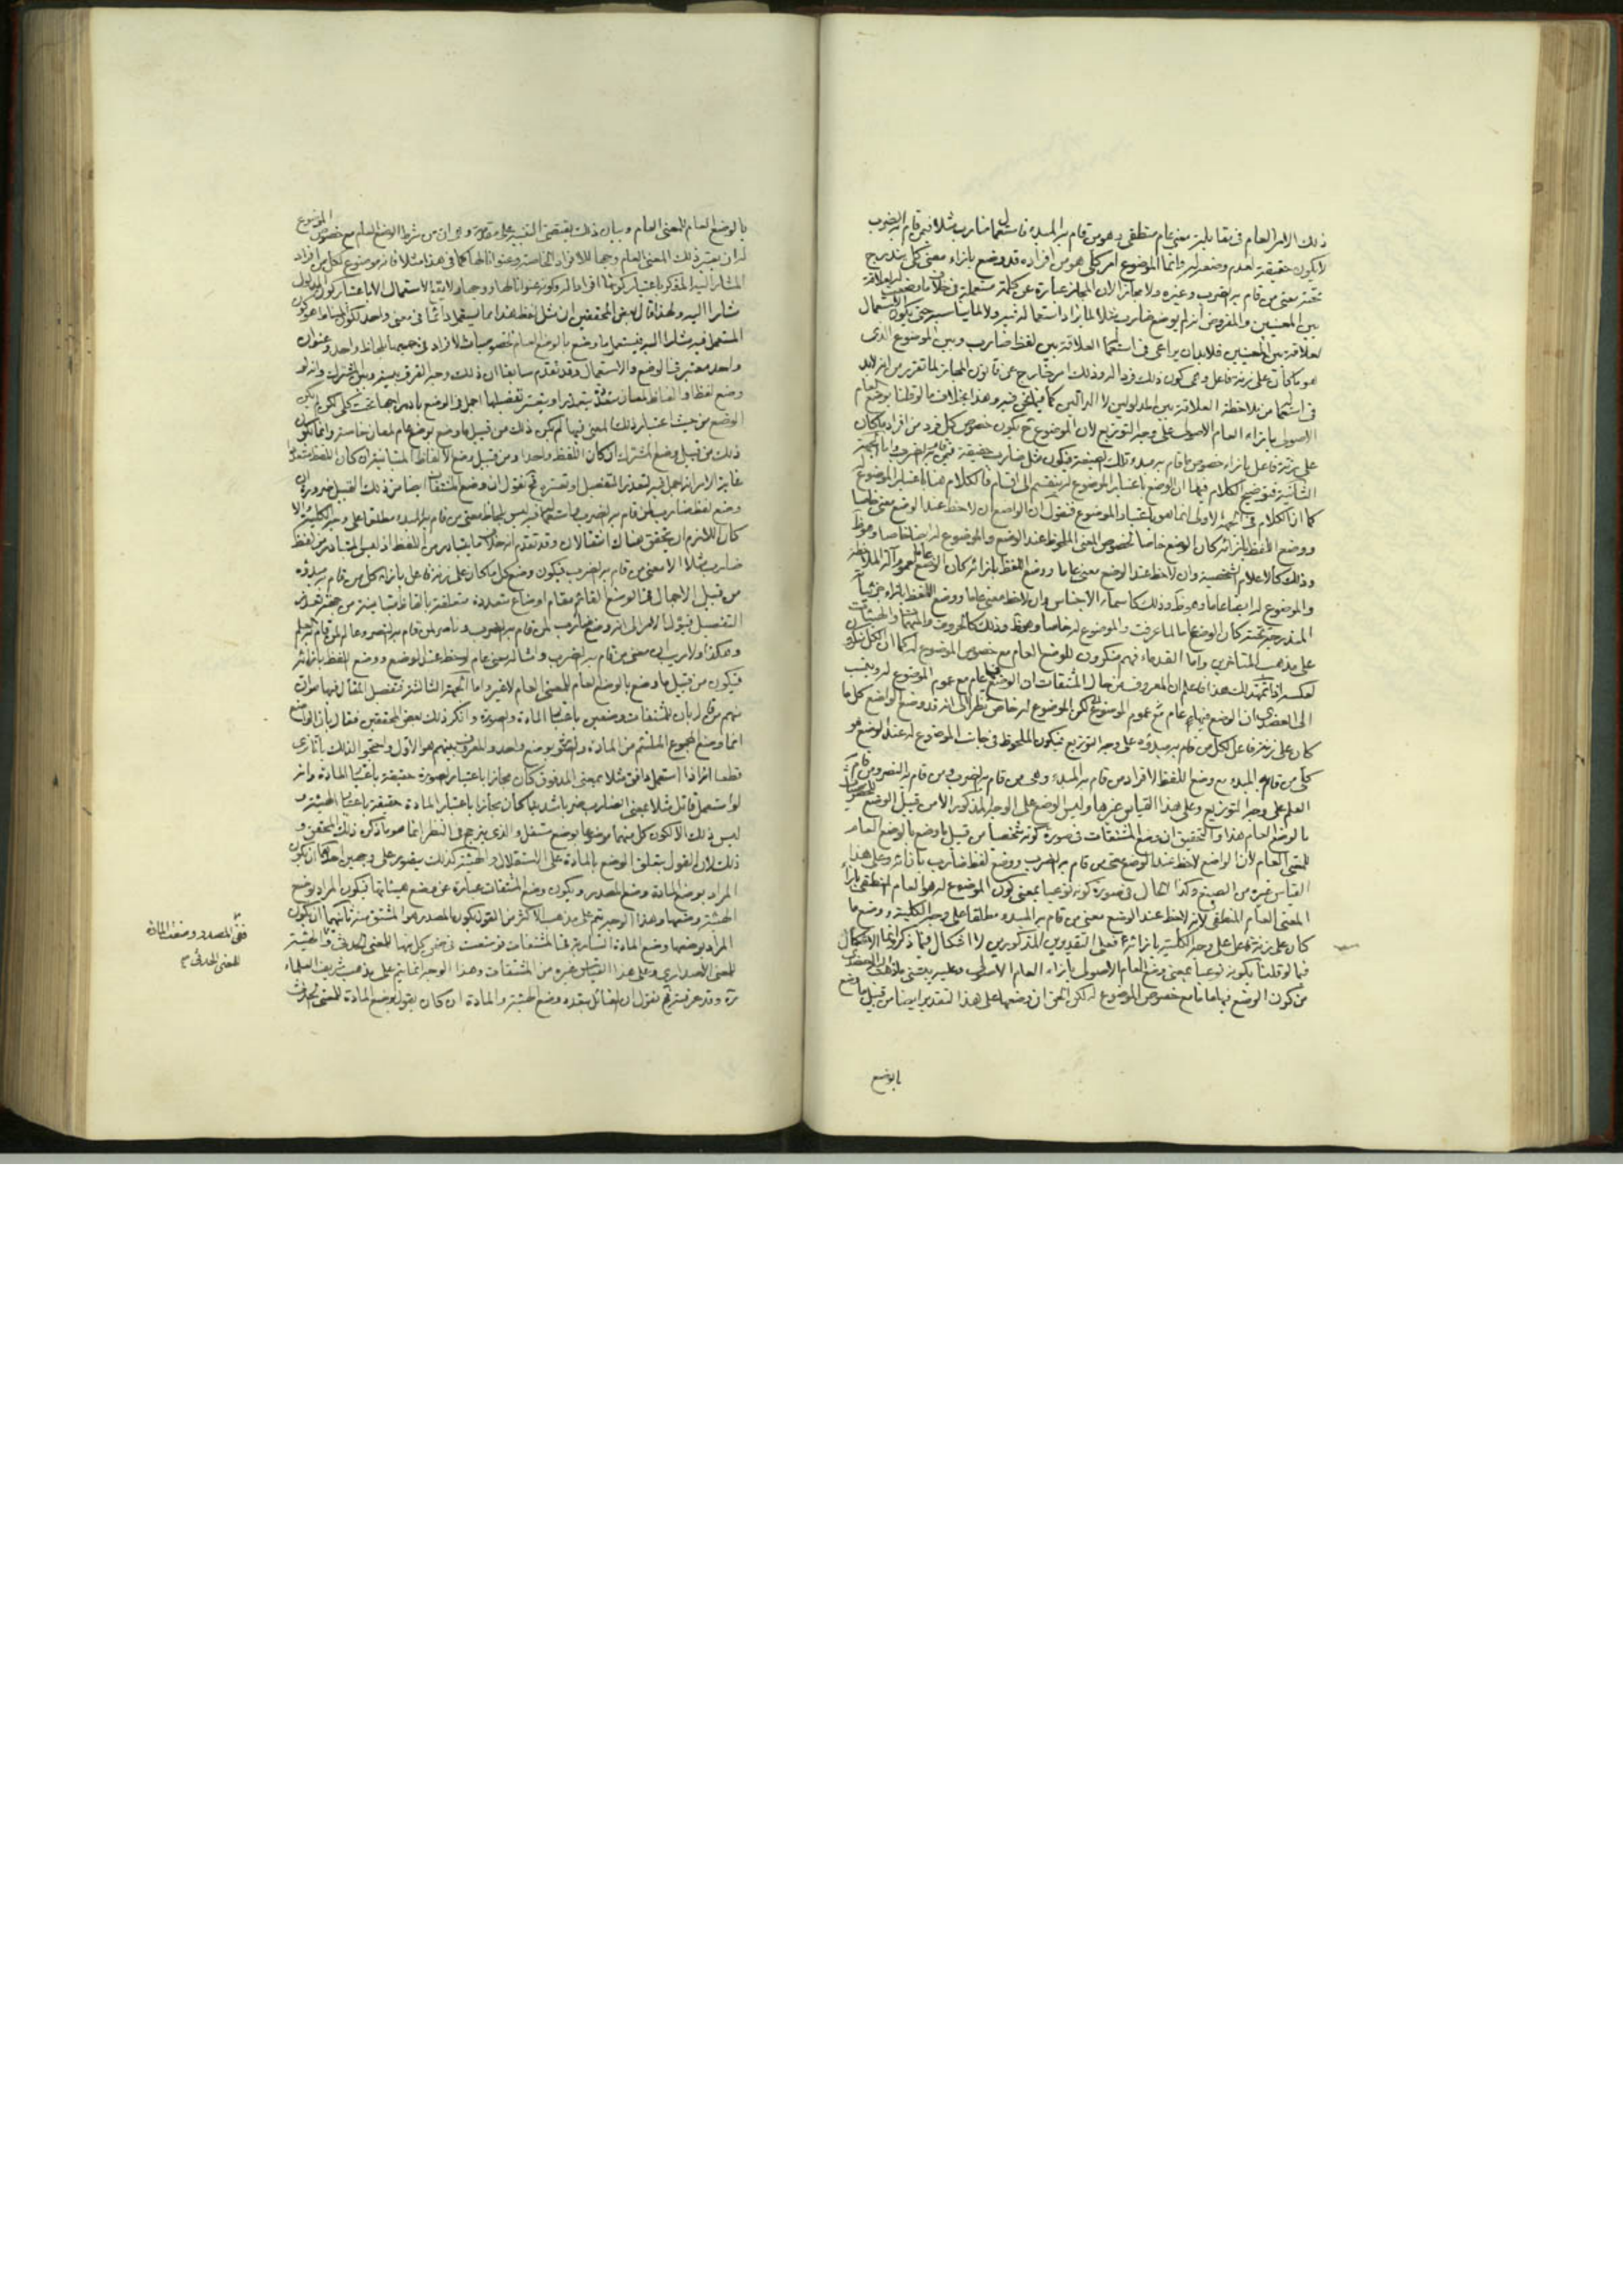 ذلك الامر العام في مقابلته معنى عام منطقي وهو من قام به المبدء فاستعمال ضارب مثلا فيمن قام به الضرب
لا يكون حقيقة لعدم وضعه له وانما الموضوع امر كلي هو من افراده قد وضع بازاء معنى كلي يندرج
تحته معنى من قام به الضرب وغيره ولا مجازا لان المجاز عبارة عن كلمة مستعملة في خلاف ما وضعت له لعلاقة
بين المعنيين والمفروض انه لم يوضع ضارب مثلا لما يراد استعماله فيه ولا لما يناسبه حتى يكون الاستعمال
لعلاقة بين المعنيين فلا بد ان يراعى في استعمالها العلاقة بين لفظ ضارب وبين الموضوع الذي
هو ما كان على زنة فاعل وهي كون ذلك فردا له وذلك امر خارج عن قانون المجاز لما تقرر من انه لابد
في استعماله من ملاحظة العلاقة بين المدلولين لا الدالين كما فيما نحن فيه وهذا بخلاف ما لو قلنا بوضع العام
الاصولي بازاء العام الاصولي على وجه التوزيع لان الموضوع ح يكون خصوص كل فرد من افراد ما كان
على زنة فاعل بازاء خصوص من قام به مبدء تلك الصيغة فيكون مثل ضارب حقيقة فيمن قام به الضرب واما الجهة
الثانية فتوضيح الكلام فيها ان الوضع باعتبار الموضوع له ينقسم الى اقسام فالكلام هنا باعتبار الموضوع له
كما ان الكلام في الجهة الاولى انما هو باعتبار الموضوع فنقول ان الواضع ان لاحظ عند الوضع معنى خاصا
ووضع اللفظ بازائه كان الوضع خاصا لخصوص المعنى الملحوظ عند الوضع والموضوع له ايضا خاصا وهو ظ
وذلك كالاعلام الشخصية وان لاحظ عند الوضع معنى عاما ووضع اللفظ بازائه كان الوضع عاما لعموم آلة الملاحظة
والموضوع له ايضا عاما وهو ظ وذلك كاسماء الاجناس وان لاحظ معنى عاما ووضع اللفظ بازاء جزئياته
المندرجة تحته كان الوضع عاما لما عرفت والموضوع له خاصا وهو ظ وذلك كالحروف والمبهمات والهيئات
على مذهب المتأخرين واما القدماء فهم منكرون للوضع العام مع خصوص الموضوع له كما ان الكل منكر
لعكسه اذا تمهد لك هذا فاعلم ان المعروف من حال المشتقات ان الوضع فيها عام مع عموم الموضوع له وينسب
الى العضدي ان الوضع فيها عام مع عموم الموضوع لكن الموضوع له خاص نظرا الى انه قد وضع الواضع كل ما
كان على زنة فاعل لكل من قام به مبدؤه على وجه التوزيع فيكون الملحوظ في جانب الموضوع له عند الوضع هو
كلي من قام به المبدء مع وضع اللفظ لافراد من قام به المبدء وهي من قام به الضرب ومن قام به النصر ومن قام به
العلم على وجه التوزيع وعلى هذا القياس غيرها وليس الوضع على الوجه المذكور الا من قبيل الوضع
بالوضع العام هذا والتحقيق ان وضع المشتقات في صورة كونه شخصيا من قبيل ما وضع بالوضع العام
للمعنى العام لان الواضع لاحظ عند الوضع معنى من قام به الضرب ووضع لفظ ضارب بازائه وعلى هذا
القياس غيره من الصيغ وكذا الحال في صورة كونه نوعيا بمعنى كون الموضوع له هو العام المنطقي بازاء
المعنى العام المنطقي لانه لاحظ عند الوضع معنى من قام به المبدء مطلقا على وجه الكلية ووضع ما
كان على زنة فاعل على وجه الكلية بازائه فعلى التقديرين المذكورين لا اشكال فيما ذكر وانما الاشكال
فيما لو قلنا بكونه نوعيا بمعنى وضع العام الاصولي بازاء العام الاصولي وعليه يبتني ما ذهب اليه العضدي
من كون الوضع فيها عاما مع خصوص الموضوع له لكن الحق ان وضعها على هذا التقدير ايضا من قبيل ما وضع
بالوضع
بالوضع العام للمعنى العام وبيان ذلك يقتضي التنبيه على مقدمة وهي ان من شرط الوضع العام مع خصوص الموضوع
له ان يعتبر ذلك المعنى العام وجها للافراد الخاصة وعنوانا لها كما في هذا مثلا فانه موضوع لكل من افراد
المشار اليه المذكر باعتبار كونها افرادا له وكونه عنوانا لها ووجها ولا يقع الاستعمال الا باعتبار كون المدلول
مشارا اليه ولهذا قال بعض المحققين ان مثل لفظ هذا مما يستعمل دائما في معنى واحد
المستعمل فيه مشارا اليه فيستعمل ما وضع بالوضع العام لخصوصيات الافراد في جميعها بلحاظ واحد وعنوان
واحد معتبر في الوضع والاستعمال وقد تقدم سابقا ان ذلك وجه الفرق بينه وبين المشترك وانه لو
وضع لفظا او الفاظا لمعان متعددة يتعذر او يتعسر تفصيلها اجمل في الوضع بادراجها تحت كلي لكن لم يكن
الوضع من حيث اعتبار ذلك المعنى فيها لم يكن ذلك من قبيل ما وضع بوضع عام لمعان خاصة وانما يكون
ذلك من قبيل وضع المشترك ان كان اللفظ واحدا ومن قبيل وضع الالفاظ المتباينة ان كان اللفظ متعددا
غاية الامر انه اجمل فيه لتعذر التفصيل او تعسره فح نقول ان وضع المشتقات ايضا من ذلك القبيل ضرورة ان
وضع لفظ ضارب لمن قام به الضرب واستعماله فيه ليس بلحاظ معنى من قام به المبدء مطلقا على وجه الكلية والا
كان اللازم ان يتحقق هناك انتقالان وقد تقدم انه خلاف ما يتبادر من اللفظ اذ ليس المتبادر من لفظ
ضارب مثلا الا معنى من قام به الضرب فيكون وضع كل ما كان على زنة فاعل بازاء كل من قام به مبدؤه
من قبيل الاجمال في الوضع القائم مقام اوضاع متعددة متعلقة بالفاظ متباينة من جهة تعذر
التفصيل فيؤل الامر الى انه وضع ضارب لمن قام به الضرب وناصر لمن قام به النصر وعالم لمن قام به العلم
وهكذا ولا ريب ان معنى من قام به الضرب وامثاله معنى عام لوحظ عند الوضع ووضع اللفظ بازائه
فيكون من قبيل ما وضع بالوضع العام للمعنى العام لا غير واما الجهة الثالثة فتفصيل المقال فيها هو ان
منهم من قال بان للمشتقات وضعين باعتبار المادة والصورة وانكر ذلك بعض المحققين فقال بان الواضع
انما وضع المجموع الملتئم من المادة والصورة بوضع واحد والمعروف بينهم هو الاول واحتجوا لذلك بانا نرى
قطعا انه اذا استعمل دافق مثلا بمعنى المدفوق كان مجازا باعتبار الصورة حقيقة باعتبار المادة وانه
لو استعمل قاتل مثلا بمعنى الضارب ضربا شديدا كان مجازا باعتبار المادة حقيقة باعتبار الهيئة و
ليس ذلك الا لكون كل منهما موضوعا بوضع مستقل والذي يترجح في النظر انما هو ما ذكره ذلك المحقق و
ذلك لان القول بتعلق الوضع بالمادة على الاستقلال والهيئة كذلك يتصور على وجهين احدهما ان يكون
المراد بوضع المادة وضع المصدر ويكون وضع المشتقات عبارة عن وضع هيئاتها فيكون المراد بوضع
الهيئة وضعها وهذا الوجه يتم على مذهب الاكثر من القول بكون المصدر هو المشتق منه ثانيهما ان يكون
المراد بوضعها وضع المادة السارية في المشتقات فوضعت في ضمن كل منها للمعنى الحدثي والهيئة
للمعنى المصدري وعلى هذا القياس غيره من المشتقات وهذا الوجه انما يتم على مذهب شريف العلماء
ره وقد عرفته فح نقول ان القائل بتعدد وضع الهيئة والمادة ان كان يقول بوضع المادة للمعنى الحدثي
ففي المصدر وضعت المادة
للمعنى الحدثي م